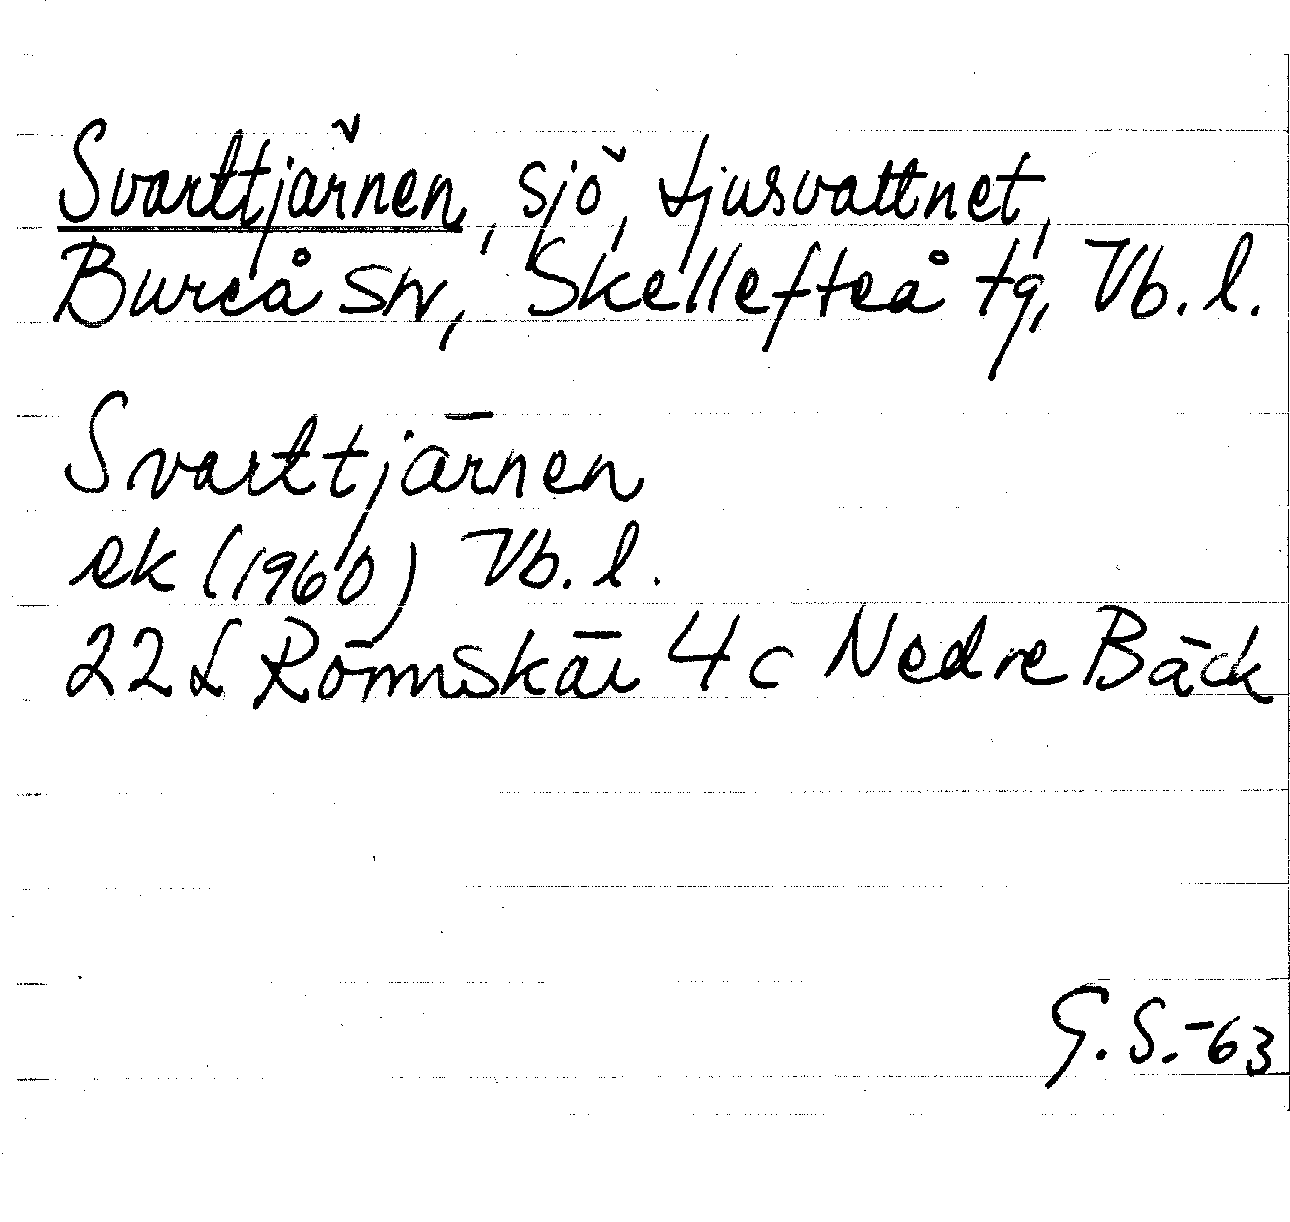 Svarttjärnen, sjö, Ljusvattnet,
Bureå sn, Skellefteå tg, Vb. l.
Svarttjärnen
ek (1960) Vb. l.
22 L Rönnskär 4 c Nedre Bäck
G. S. -63